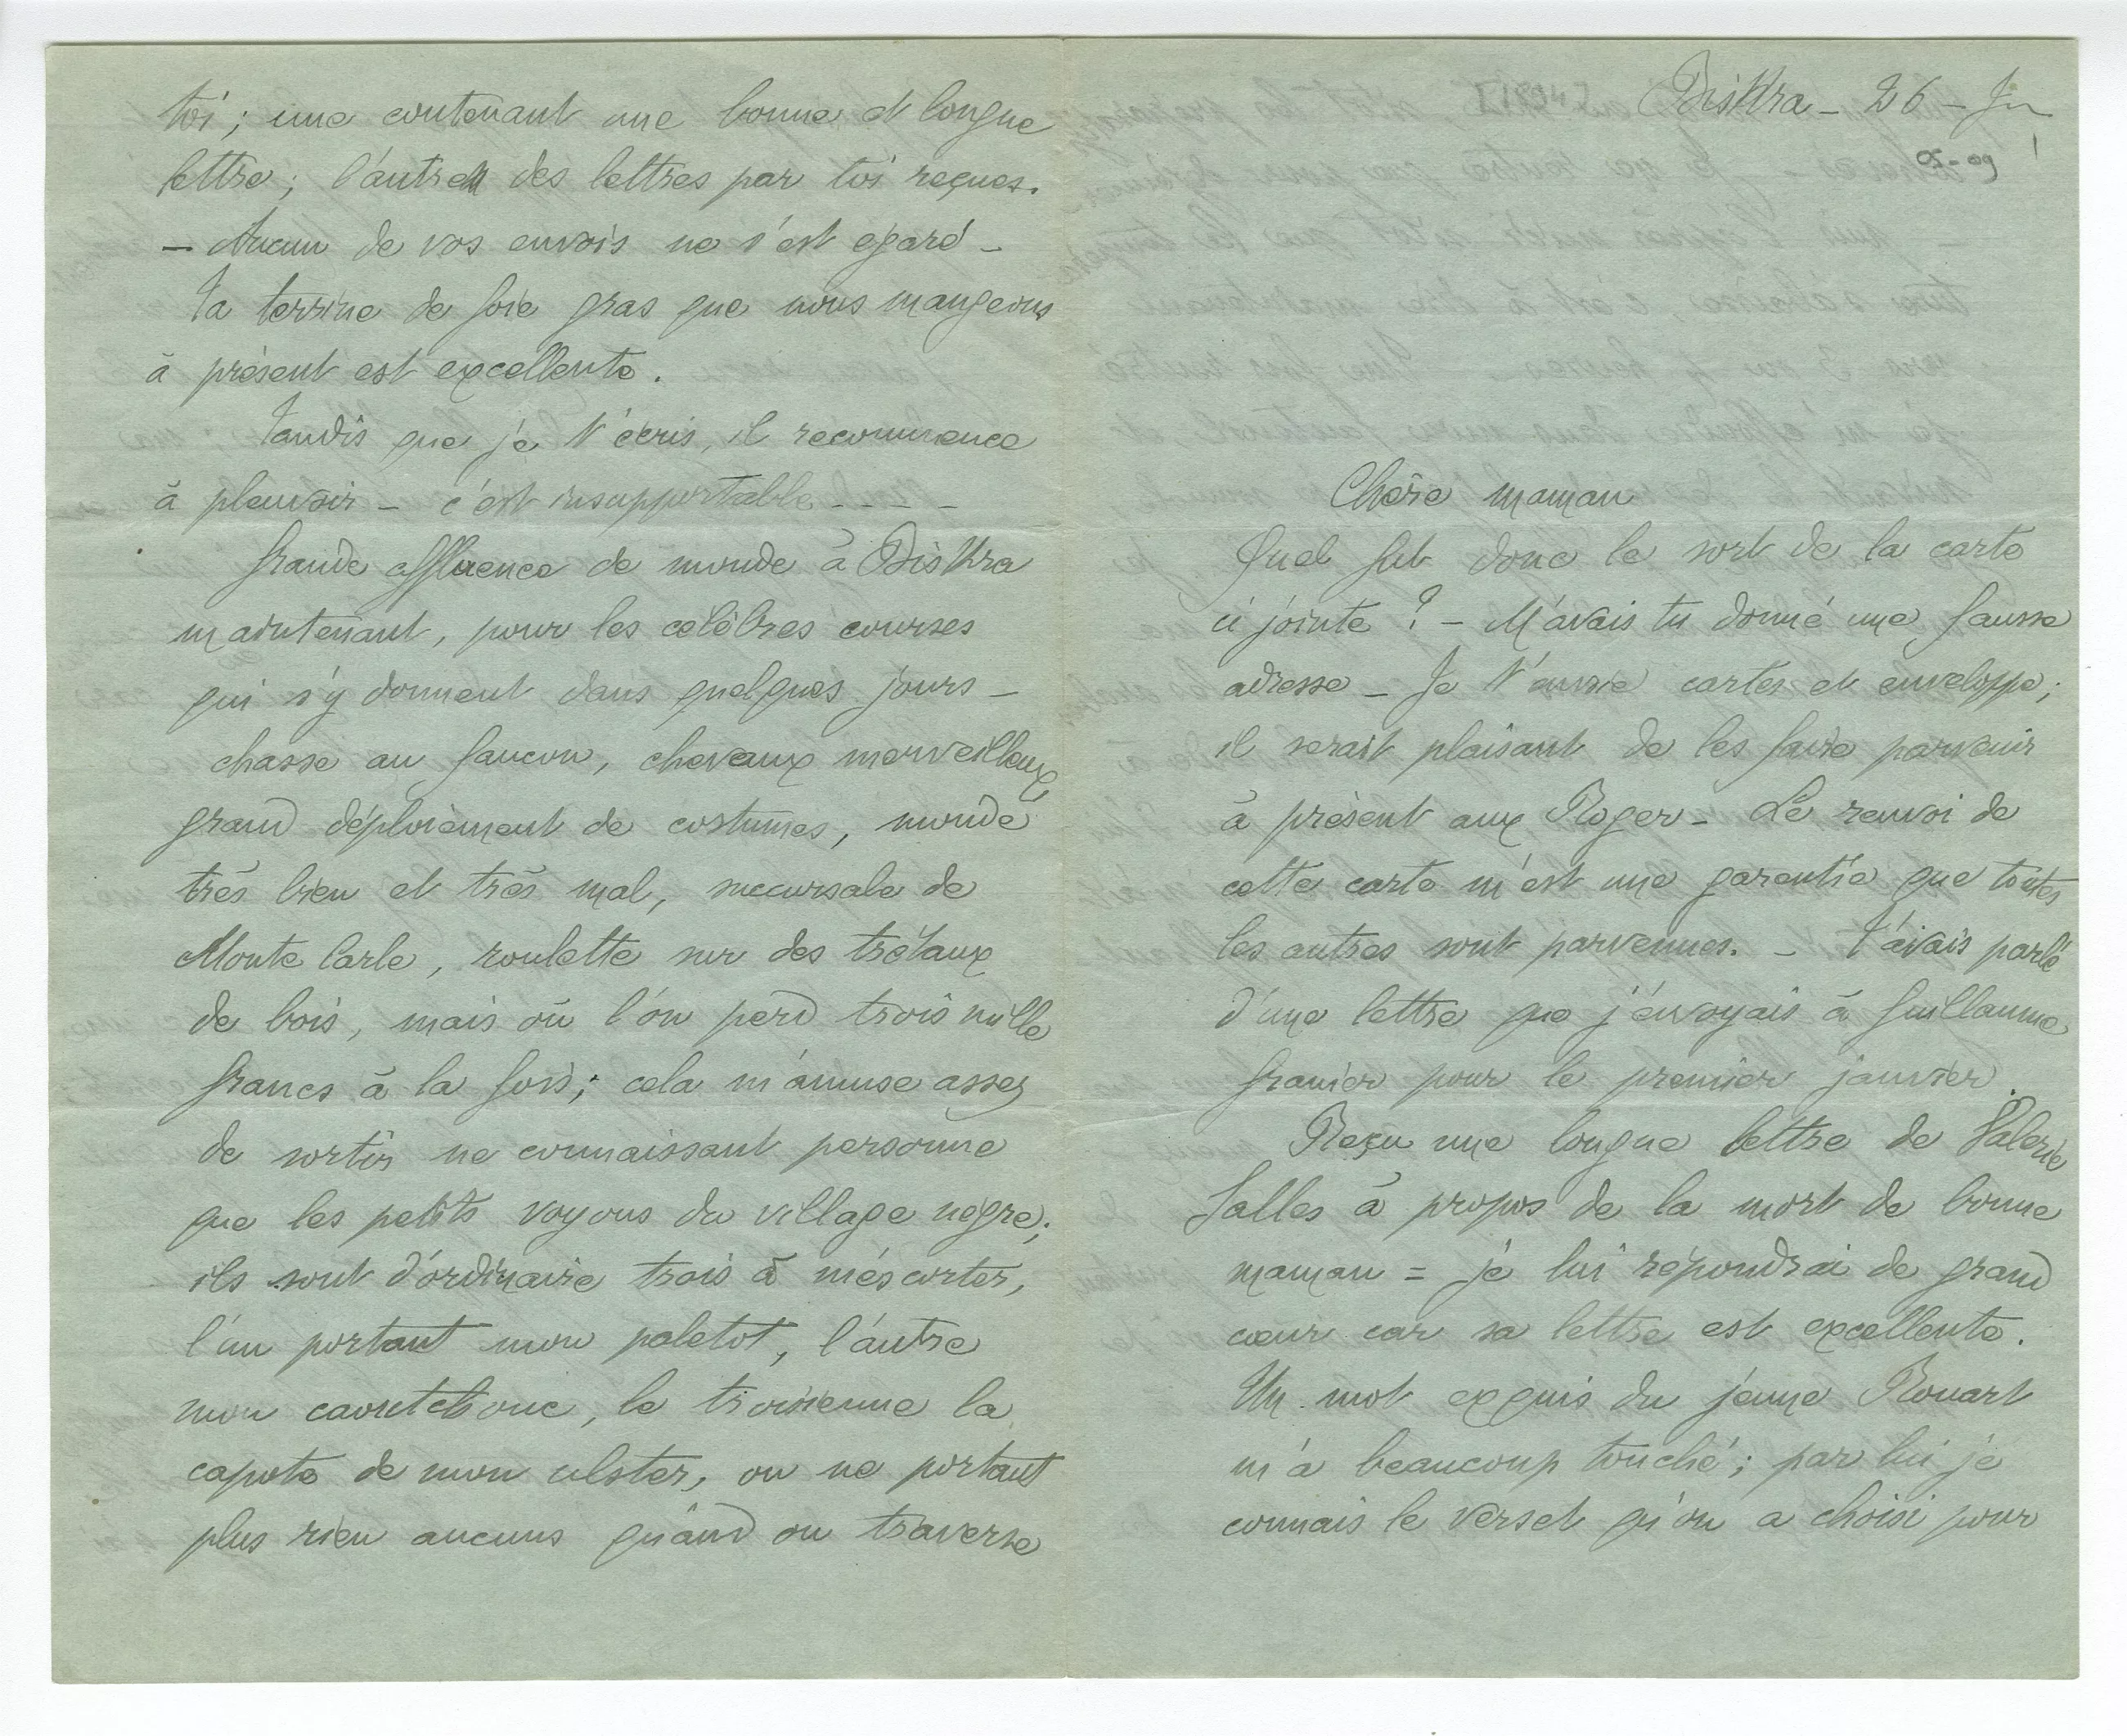 [1894] Biskra _ 26 _ Jr
05-09
Chère maman
Quel fut donc le sort de la carte
ci jointe ? - M'avais tu donné une fausse
adresse _ Je t'envoie cartes et enveloppe ;
il serait plaisant de les faire parvenir
à présent aux Roger _ Le renvoi de
cette carte m'est une garentie que toutes
les autres sont parvenues. _ t'avais parlé
d'une lettre que j'envoyais à Guillaume
Granier pour le premier janvier.
Reçu une longue lettre de Valerie
Salles à propos de la mort de bonne
maman = je lui répondrai de grand
cœur car sa lettre est excellente.
Un mot exquis du jeune Rouart
m'a beaucoup touché ; par lui je
connais le verset qu'on a choisi pour
toi ; une contenant une bonne et longue
lettre ; l'autre des lettres par toi reçues.
_ Aucun de vos envois ne s'est egaré _
Ta terrine de foie gras que nous mangeons
à présent est excellente.
Tandis que je t'écris, il recommence
à pleuvoir _ c'est insupportable - - - -
Grande affluence de monde à Biskra
maintenant, pour les célèbres courses
qui s'y donnent dans quelques jours _
chasse au faucon, chevaux merveilleux,
grand déploiement de costumes, monde
très bien et très mal, succursale de
Monte Carle, roulette sur des tréteaux
de bois, mais où l'on perd trois mille
francs à la fois ; cela m'amuse assez
de sortir ne connaissant personne
que les petits voyous du village nègre ;
ils sont d'ordinaire trois à m'escorter,
l'un portant mon paletot, l'autre
mon caoutchouc, le troisième la
capote de mon ulster, ou ne portant
plus rien aucuns quand on traverse